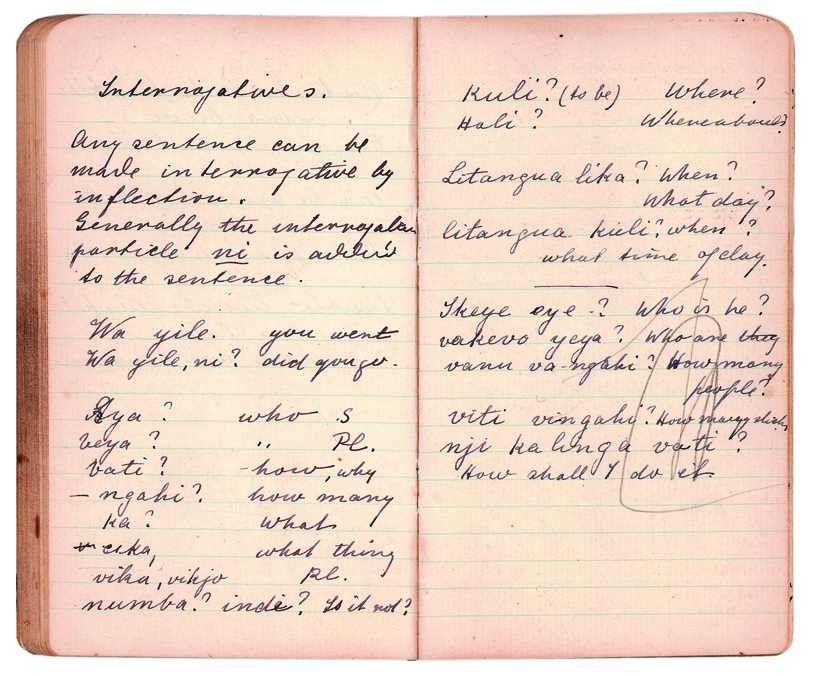 Interrogatives.
Any sentence can be
made interrogative by
inflection.
Generally the interrogative
particle ni is added
to the sentence.
Wa yile. you went
Wa yile, ni? did you go.
Eya? who S
veya? " PL.
vati? how, why
- ngahi? how many
ka? what
cika, what thing
vika, vihjo PL.
numba? indi? Is it not?
Kuli? (to be) Where?
Hali? Whereabouts?
Litangua lika? When?
What day?
litangua kuli? when?
what time of day.
Ikeye eye? Who is he?
vakevo yeya? Who are they
vanu va-ngahi? How many
people?
viti vingahi? How many sticks
nji kalinga vati?
How shall I do it